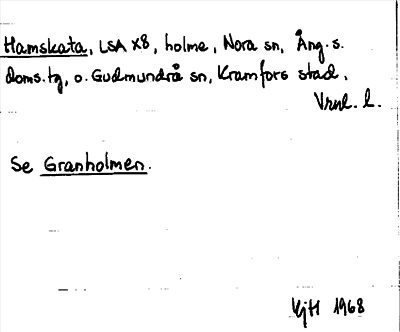 Hamskata, LSA X8, holme, Nora sn, Ång. s.
doms. tg, o. Gudmundrå sn, Kramfors stad,
Vrnl. l.
Se Granholmen.
KjH 1968